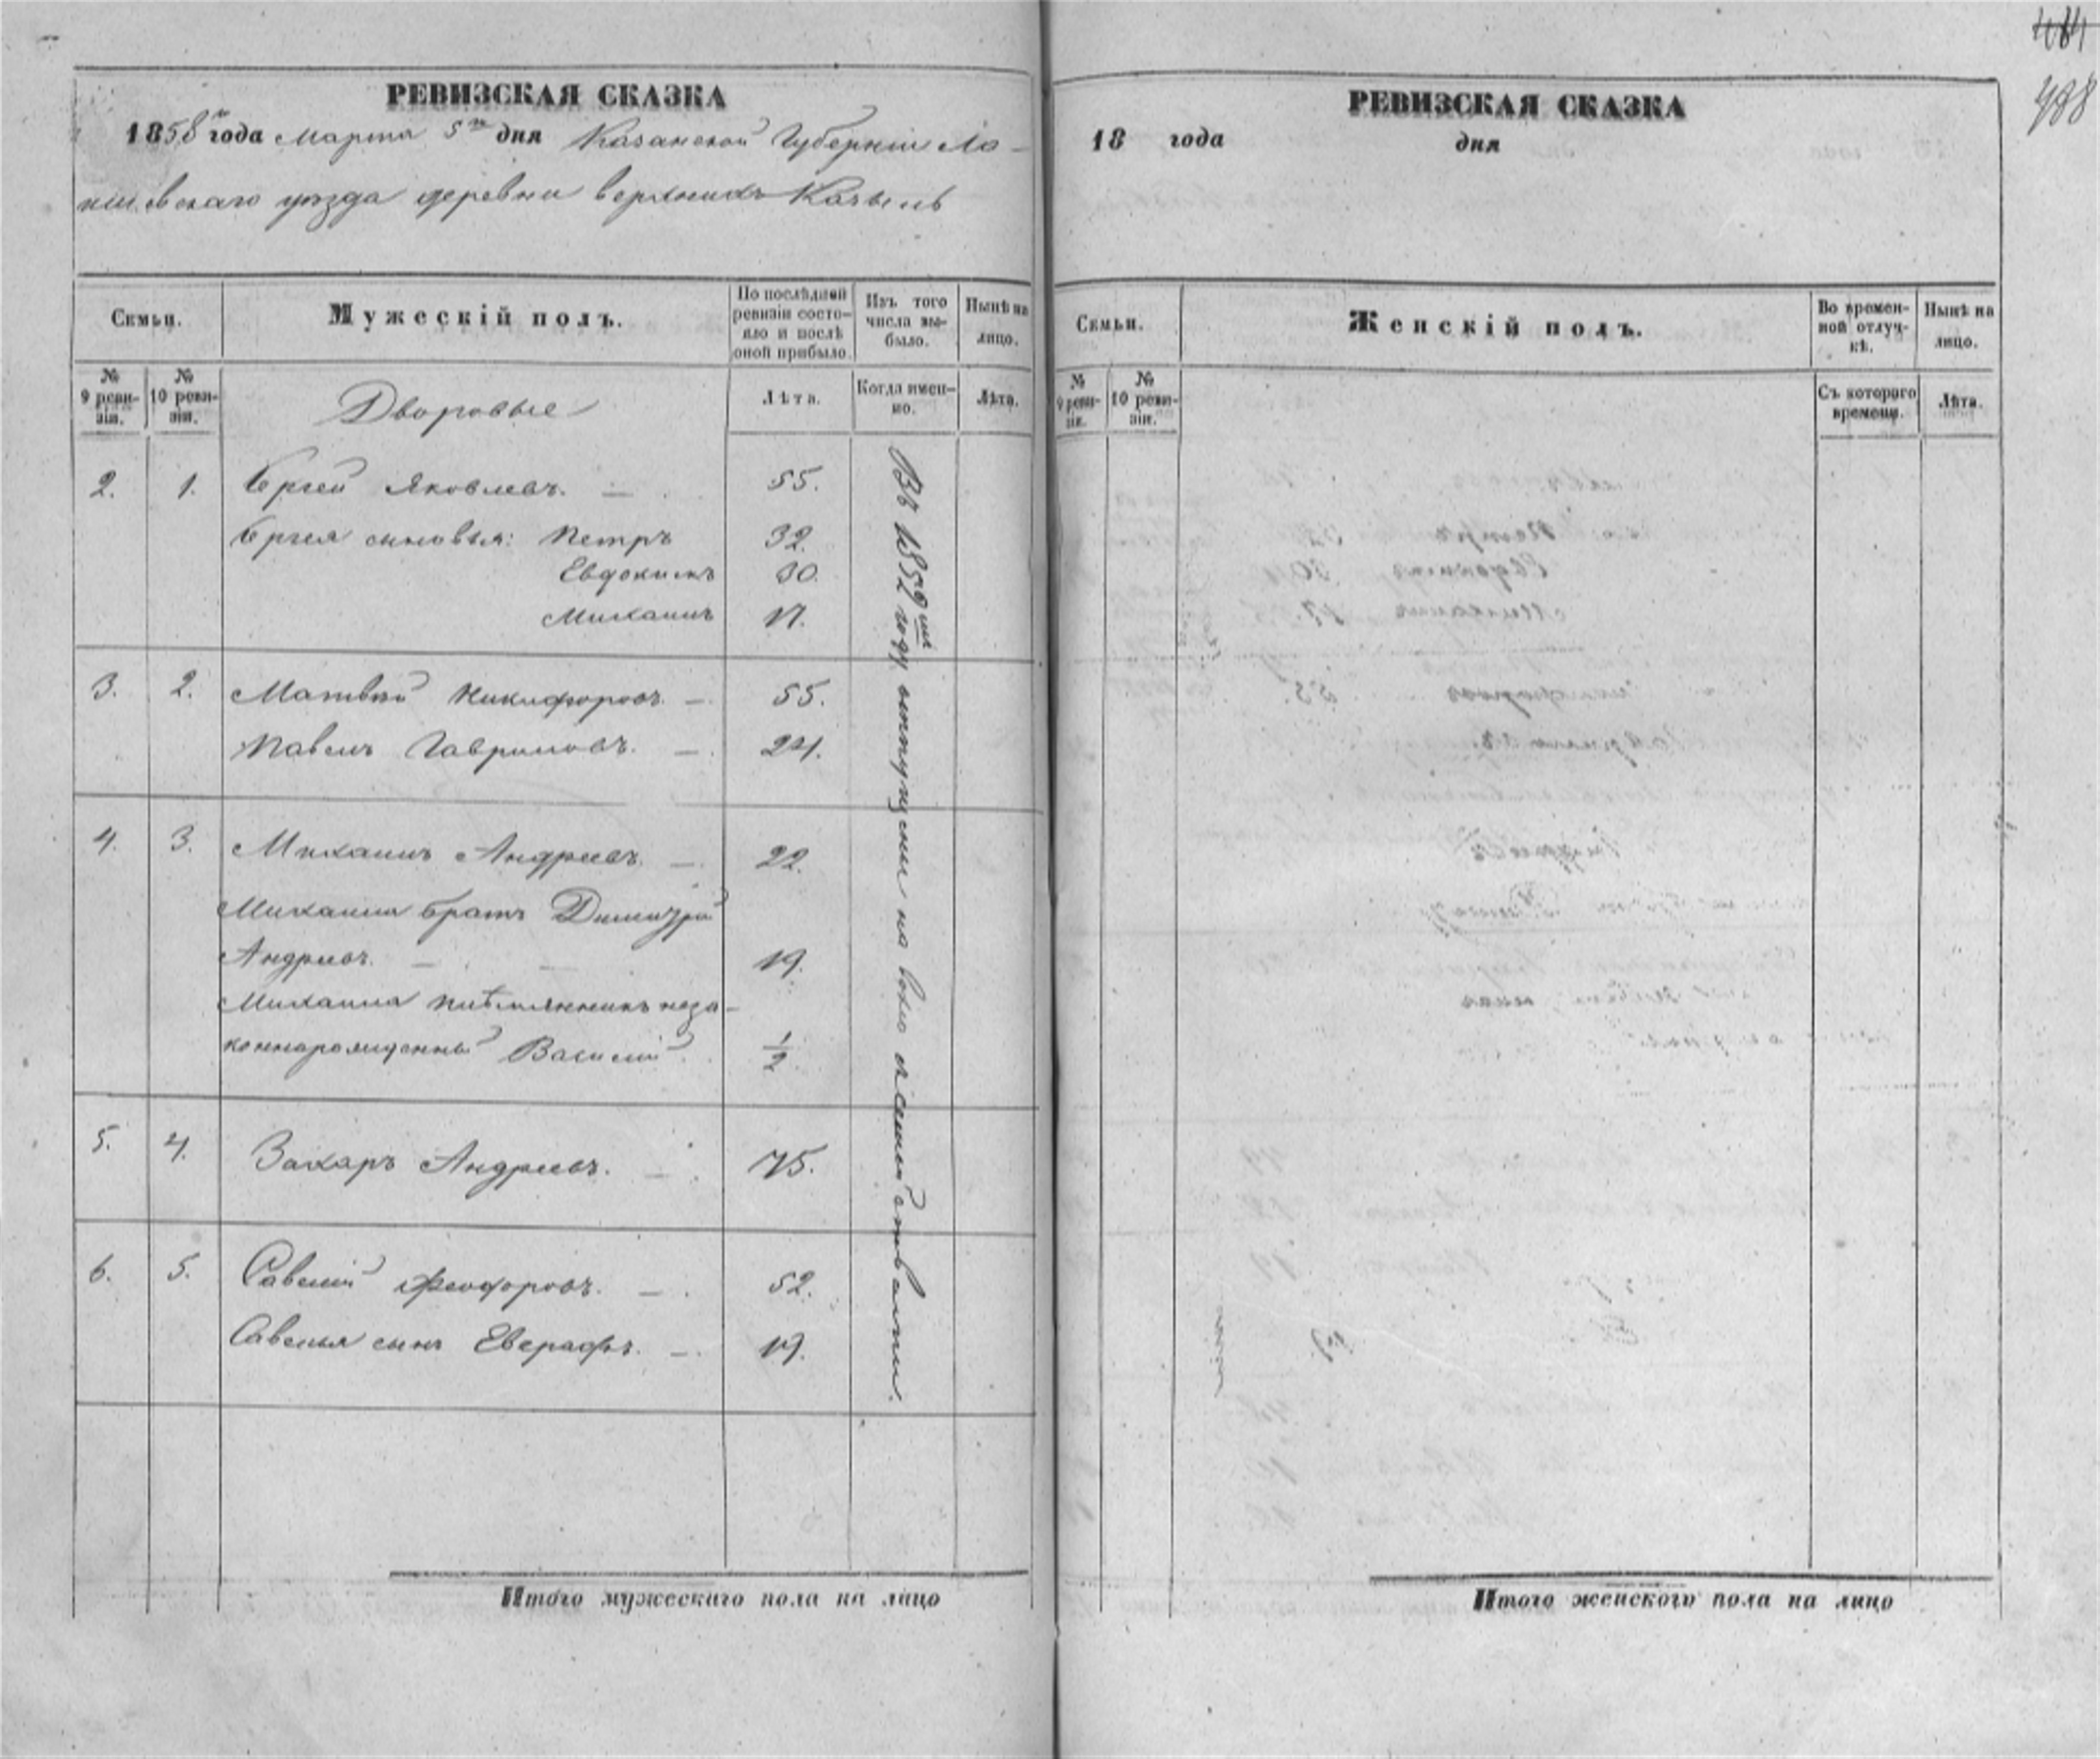 484
488
РЕВИЗСКАЯ СКАЗКА
1858 года Марта 5го дня Казанской Губерніи Ла-
ишевскаго уѣзда деревни верхнихъ
Семьи.
Мужескій полъ.
По послѣдней ревизіи состояло и послѣ оной прибыло.
Изъ того числа выбыло.
Нынѣ на лицо.
№ 9 ревизіи.
№ 10 ревизіи.
Дворовые
Лѣта.
Когда именно.
Лѣта.
2. 1. Сергей Яковлевъ. — 55.
Сергея сыновья: Петръ 32.
Евдокимъ 30.
Михаилъ 17.
3. 2. Матвѣй Никифоровъ. — 55.
Павелъ Гавриловъ. — 24.
4. 3. Михаилъ Андреевъ. — 22.
Михаила братъ Димитрій
Андреевъ. — 19.
Михаила племянникъ неза-
коннорожденный Василій 1/2.
5. 4. Захаръ Андреевъ. — 75.
6. 5. Савелій Феодоровъ. — 52.
Савелья сынъ Евграфъ. — 19.
Въ 1852мъ году отпущены на волю съ семействами.
Итого мужескаго пола на лицо
РЕВИЗСКАЯ СКАЗКА
18 года дня
Семьи.
Женскій полъ.
Во временной отлучкѣ.
Нынѣ на лицо.
№ 9 ревизіи.
№ 10 ревизіи.
Съ котораго времени.
Лѣта.
Итого женскаго пола на лицо